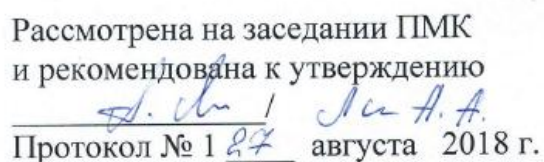 Рассмотрена на заседании ПМК
и рекомендована к утверждению
/ А. А.
Протокол № 1 27 августа 2018 г.